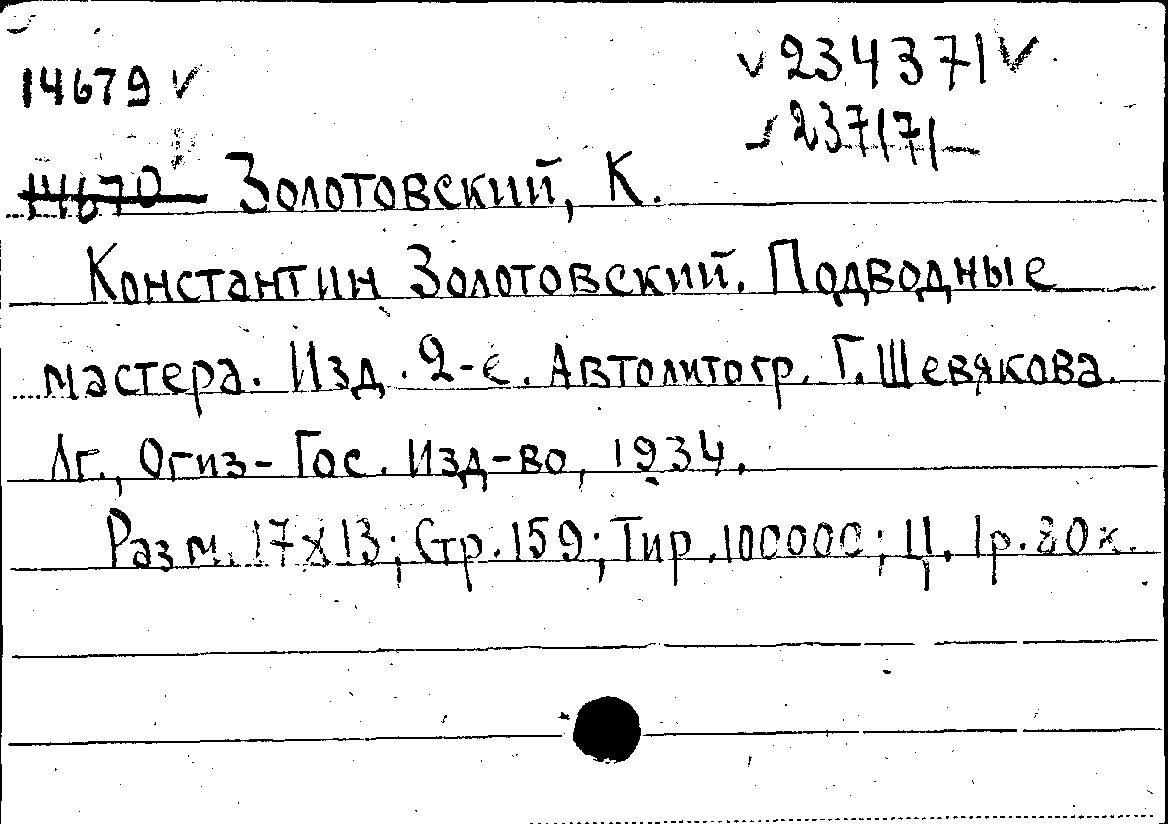 14679 √ √ 234371 √
√ 237171 –
14670 Золотовский, К.
Константин Золотовский. Подводные
мастера. Изд. 2-е. Автолитогр. Г. Шевякова.
Лг., Огиз-Гос. Изд-во, 1934.
Разм. 17х13; Стр. 159; Тир. 100000; Ц. 1р. 80к.